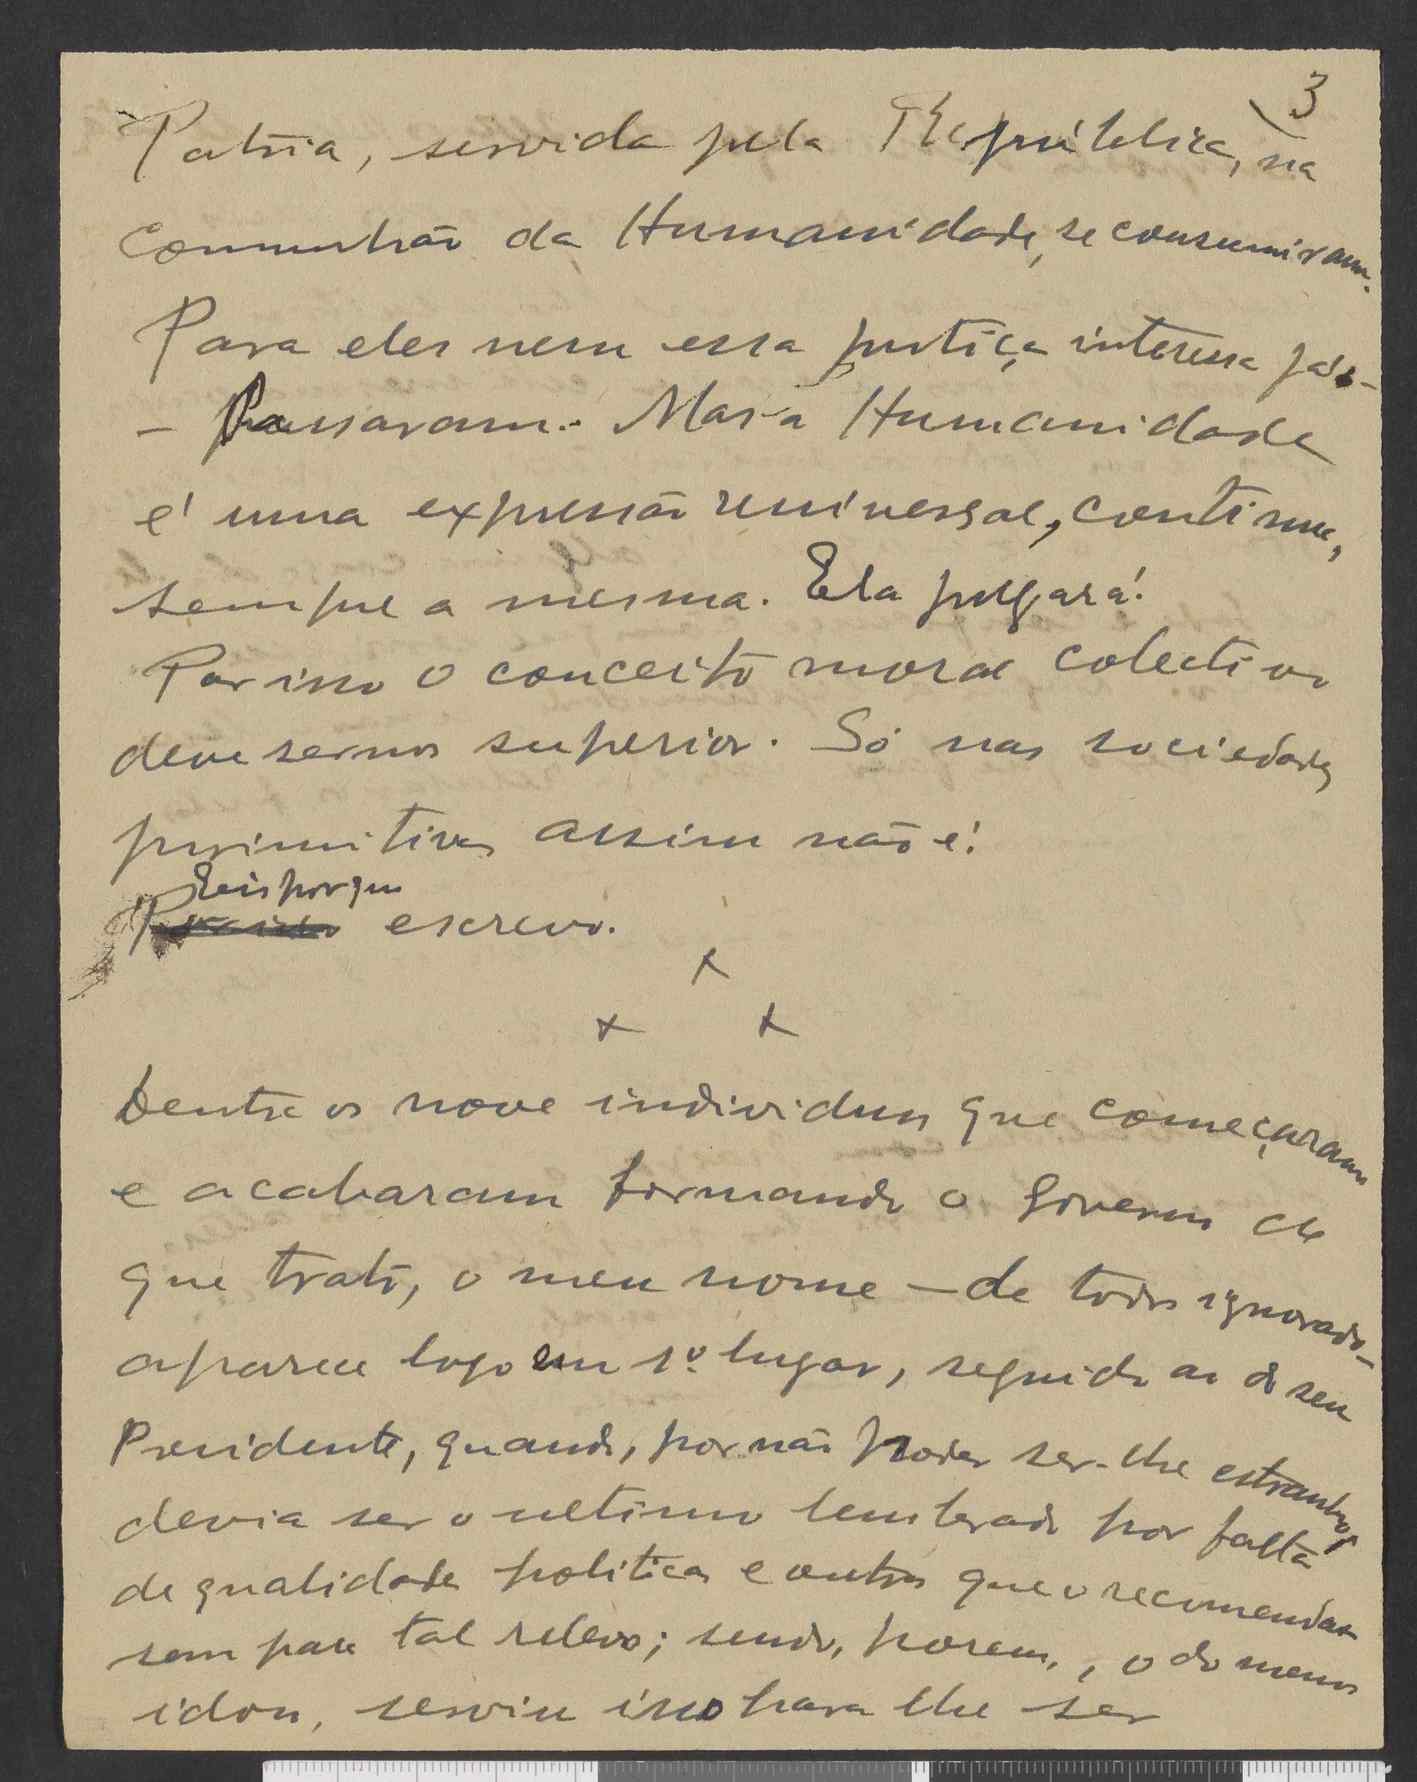 3
Patria, servida pela República, na
Comunhão da Humanidade, se consumiram.
Para eles nem essa justiça interessa já
– Passaram. Mas a Humanidade
é uma expressão universal, continue,
sempre a mesma. Ela julgará!
Por isso o conceito moral colectivo
deve sernos superior. Só nas sociedades
primitivas assim não é!
Eis porque
Por isso escrevo.
x
x x
Dentre os nove individuos que começaram
e acabaram formando o Governo de
que trato, o meu nome – de todos ignorado –
aparece logo em 1º lugar, seguido ao do seu
Presidente, quando, por não poder ser-lhe estranho,
devia ser o ultimo lembrado por falta
de qualidades politicas e outras que o recomendas-
sem para tal relevo; sendo, porem, o do menos
idoso, serviu isso para lhe ser